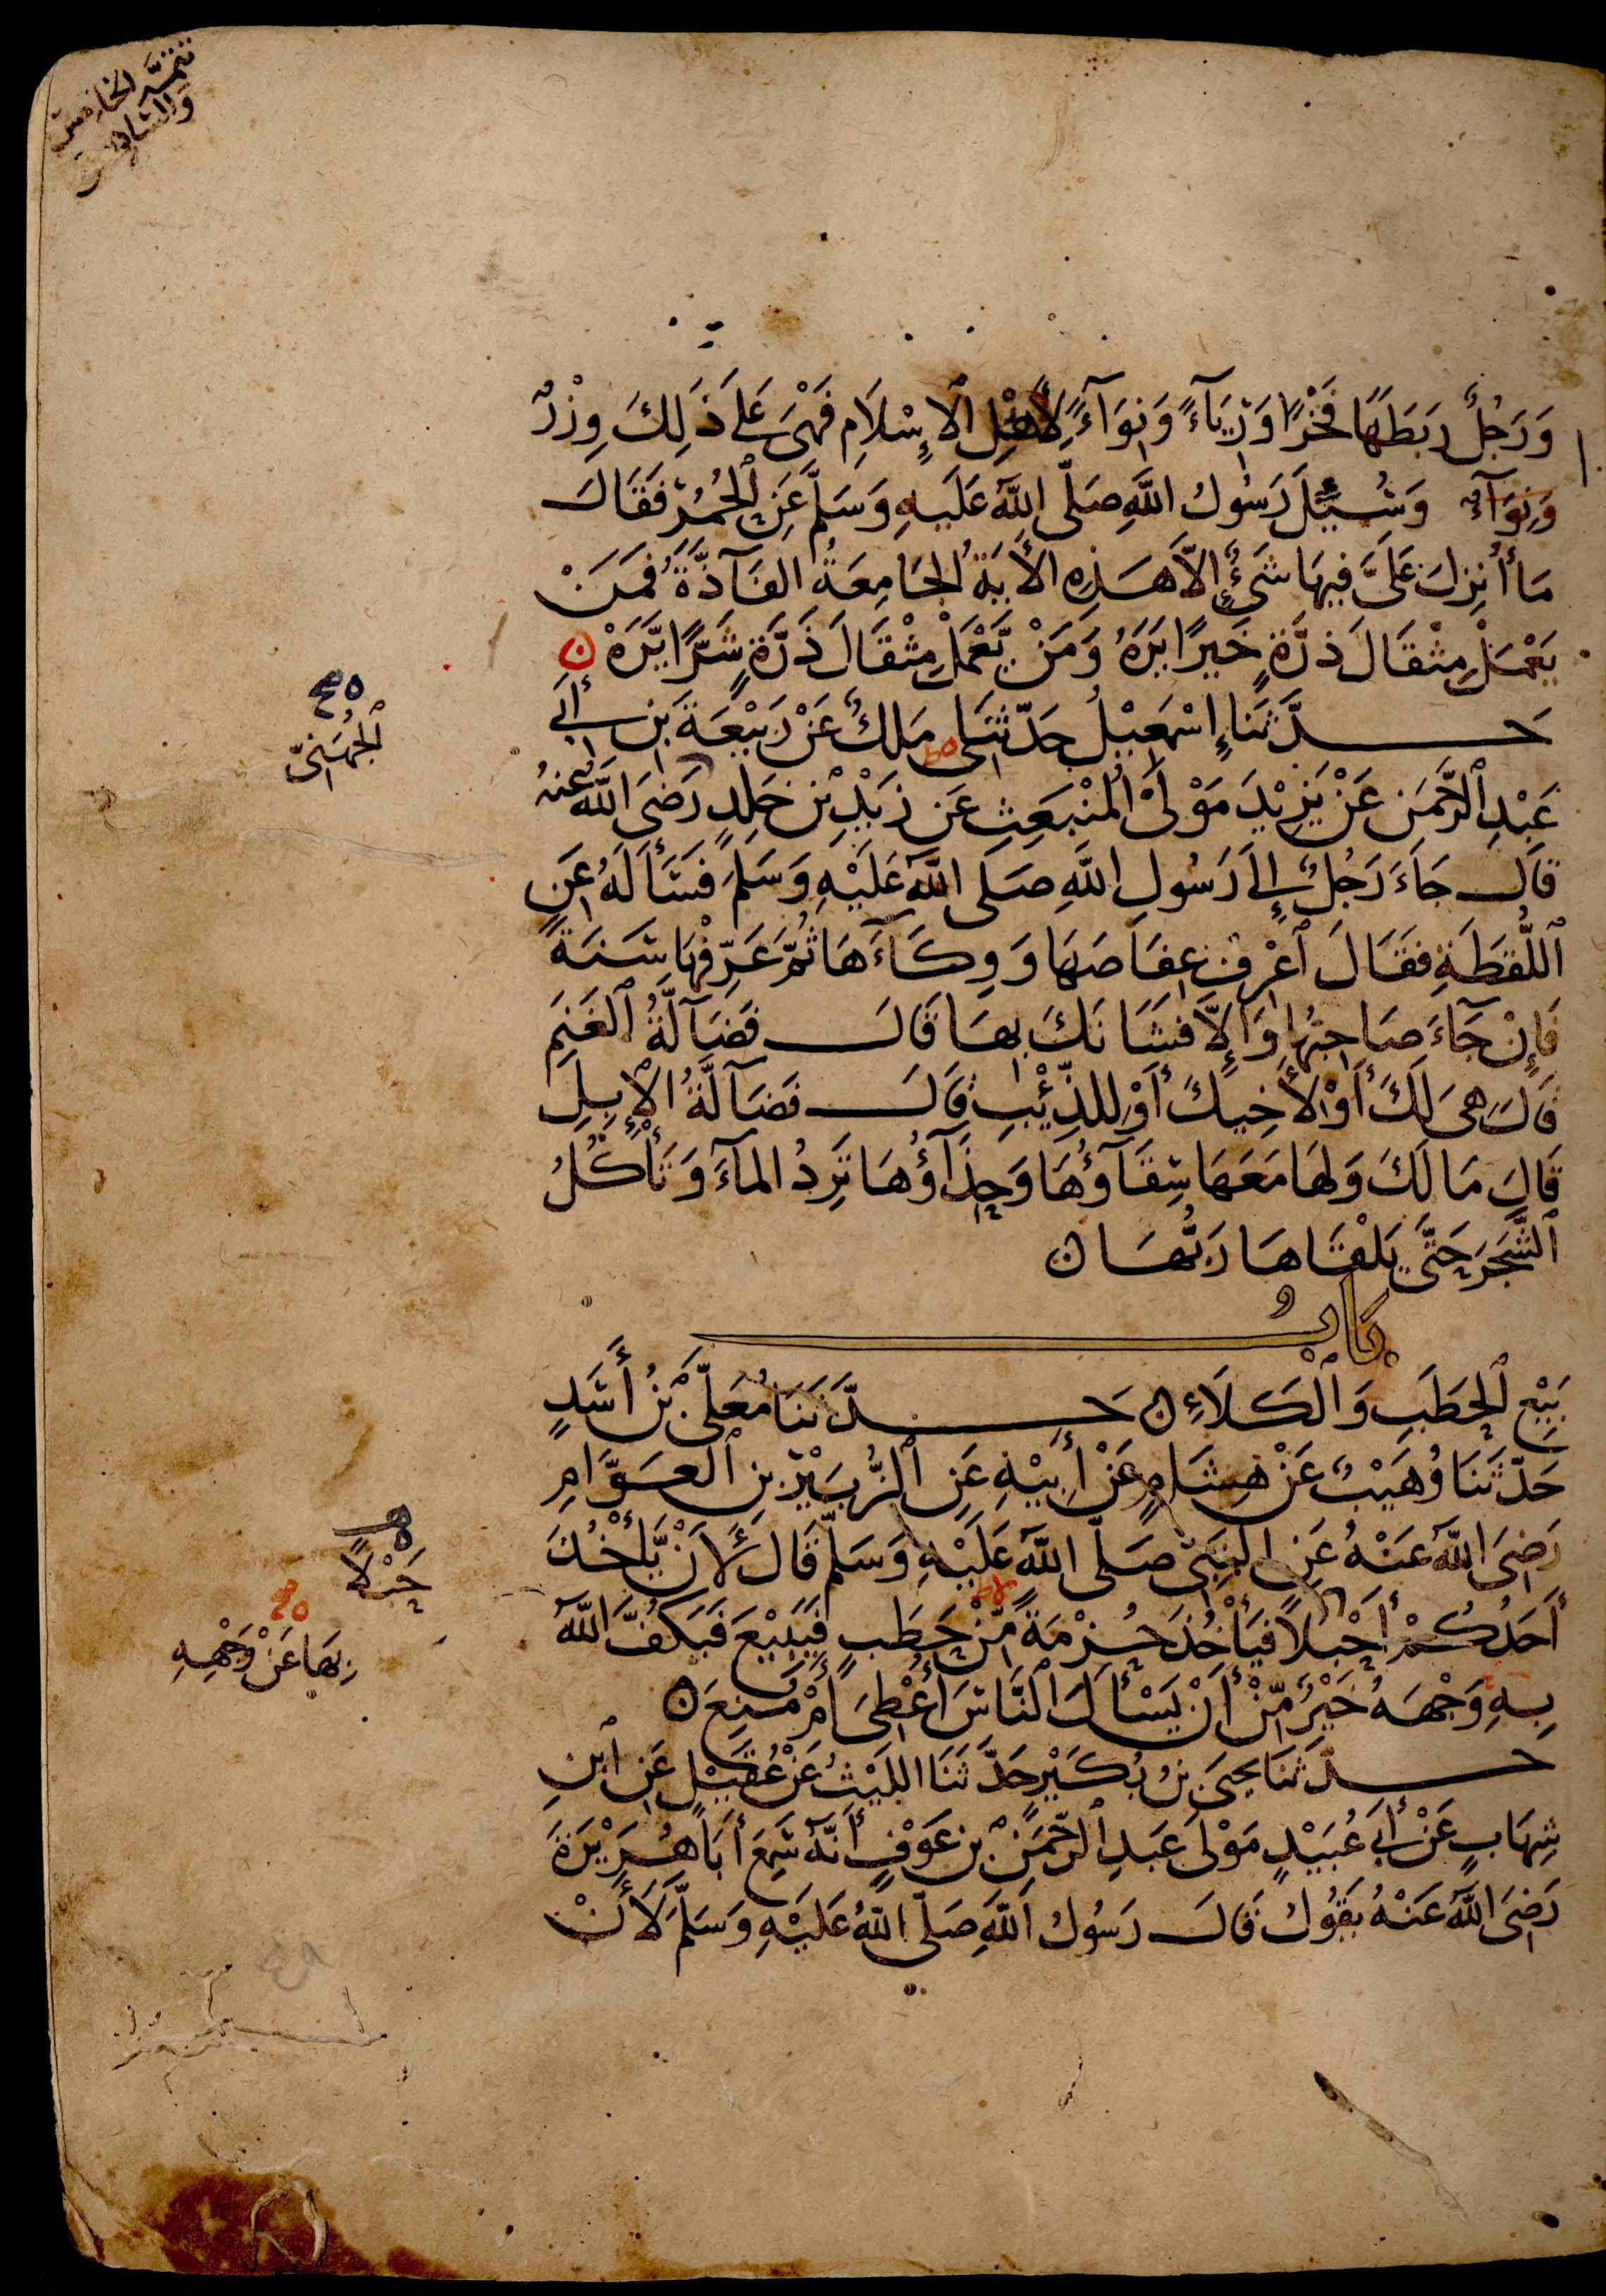 تتمة الخامس
والسادس
وَرَجُلٌ رَبَطَهَا فَخْرًا وَرِيَآءً وَنِوَآءً لِأَهْلِ ٱلْإِسْلَامِ فَهْىَ عَلَى ذَلِكَ وِزْرٌ
وَنِوَآءً وَسُئِلَ رَسُولُ اللَّهِ صَلَّى اللَّهُ عَلَيهِ وَسَلَّمَ عَنِ ٱلْحُمُرِ فَقَالَ
مَا أُنْزِلَ عَلَىَّ فِيهَا شَىْءٌ إِلَّا هَذِهِ الْأَيَةُ الْجَامِعَةُ الفَآذَّةُ فَمَنْ
يَعْمَلْ مِثْقَالَ ذَرَّةٍ خَيرًا يَرَهُ وَمَنْ يَّعْمَلْ مِثْقَالَ ذَرَّةٍ شَرًّا يَّرَهْ ن
حَدَّثَنَا إِسْمَعِيْلُ حَدَّثَنِى مَلِكٌ عَنْ رَبِيْعَةَ بْنِ أَبِى
عَبْدِ ٱلرَّحْمَنِ عَنْ يَزِيْدَ مَوْلَى الْمُنْبَعِثِ عَن زَيْدِ بْنِ خَلِدٍ رَضِىَ اللَّهُ عَنْهُ
الْجُهَنِىِّ
قَالَ جَاءَ رَجُلٌ إِلَى رَسُولِ اللَّهِ صَلَى اللَّهُ عَلَيْهِ وَسَلَّمَ فَسَأَلَهُ عَنِ
ٱللُّقَطَةِ فَقَالَ ٱعْرِفْ عِفَاصَهَا وَوِكَآءَهَا ثُمَّ عَرِّفْهَا سَنَةً
فَإِنْ جَآءَ صَاحِبُهَا وَإِلَّا فَشَانَكَ بِهَا قَالَ فَضَآلَّةُ ٱلْغَنَمِ
قَالَ هِىَ لَكَ أَوْ لِأَخِيكَ أَوْ لِلذِّئْبِ قَالَ فَضَآلَّةُ الْإِبِلِ
قَالَ مَا لَكَ وَلَهَا مَعَهَا سِقَآؤُهَا وَحِذَآؤُهَا تَرِدُ المآءَ وَتَأْكُلُ
ٱلشَّجَرَ حَتَّى يَلْقَاهَا رَبُّهَا ن
بَابُ
بَيْعِ ٱلْحَطَبِ وَٱلْكَلَاءِ ن حَدَّثَنَا مُعَلَّى بْنُ أَسَدٍ
حَدَّثَنَا وُهَيْبٌ عَنْ هِشَامٍ عَنْ أَبِيْهِ عَنِ ٱلزُّبَيْرِ بن ٱلْعَوَّامِ
رَضِىَ اللَّهُ عَنْهُ عَنِ النَّبِىِّ صَلَّى اللَّهُ عَلَيْهِ وَسَلَّمَ قَالَ لَأَنْ يَّأْخُذَ
حَبْلًا
أَحَدُكُمْ أَحْبُلًا فَيَأْخُذَ حُزْمَةً مِّنْ حَطَبٍ فَيَبِيْعَ فَيَكُفَّ اللَّهُ
بِهَا عَنْ وَجْهِهِ
بِهِ وَجْهَهُ خَيْرٌ مِّنْ أَنْ يَسْأَلَ ٱلنَّاسَ أُعْطِىَ أَمْ مُنِعَ ن
حَدَّثَنَا يَحيَى بنُ بُكَيْرٍ حَدَّثَنَا اللَّيْثُ عَنْ عُقَيْلٍ عَنِ ٱبْنِ
شِهَابٍ عَنْ أَبِى عُبَيْدٍ مَوْلَى عَبَدِ ٱلرَّحْمَنِ بْنِ عَوْفٍ أَنَّهُ سَمِعَ أَبَا هُرَيْرَةَ
رَضِىَ اللَّهُ عَنْهُ يَقُولُ قَالَ رَسُولُ اللَّهِ صَلَّى اللَّهُ عَلَيْهِ وَسَلَّمَ لَأَنْ